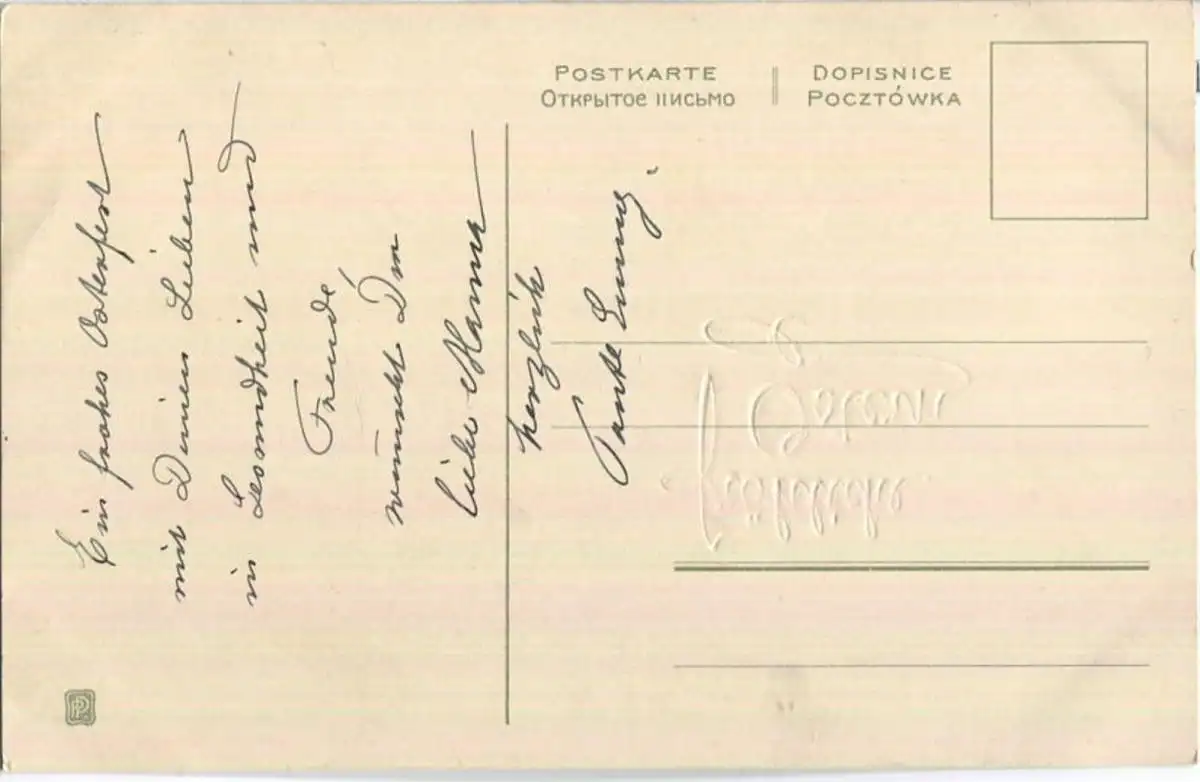 POSTKARTE
Открытое письмо
DOPISNICE
POCZTÓWKA
Ein frohes Osterfest
mit Deinen Lieben
in Gesundheit und
Freude
wünscht Dir
liebe Mama
herzlich
Tante Emmy.
Fröhliche
Ostern!
PP